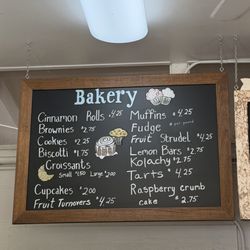 Bakery
Cinnamon Rolls $4.25
Brownies $2.75
Cookies $2.25
Biscotti $1.75
Croissants
Small $1.50 Large $2.00
Cupcakes $2.00
Fruit Turnovers $4.25
Muffins $4.25
Fudge
Fruit Strudel $4.25
Lemon Bars $2.75
Kolachy $2.75
Tarts $4.25
Raspberry crumb
cake $2.75